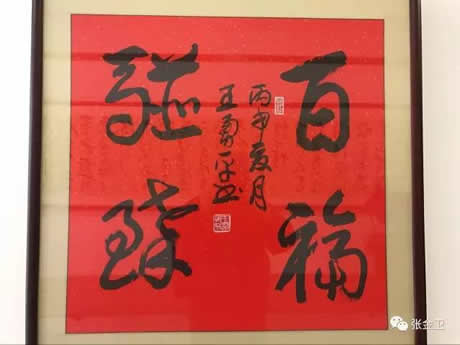 百福
丙申夏月
王勇平书
駢臻
张金卫